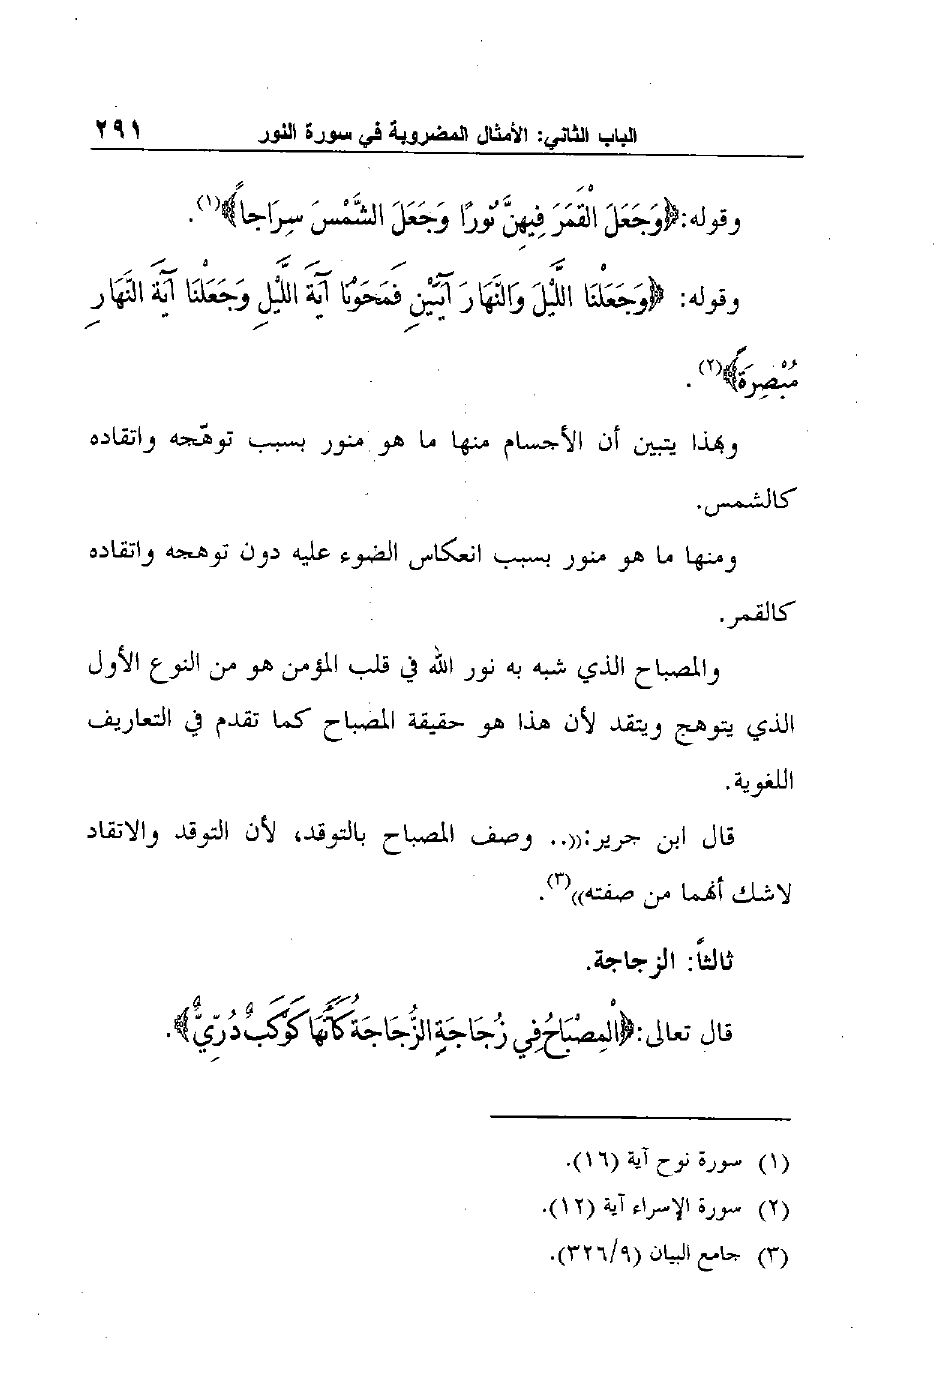 الباب الثاني: الأمثال المضروبة في سورة النور ٢٩١
وقوله:﴿وَجَعَلَ الْقَمَرَ فِيهِنَّ نُورًا وَجَعَلَ الشَّمْسَ سِرَاجاً﴾(١).
وقوله: ﴿وَجَعَلْنَا اللَّيْلَ وَالنَّهَارَ آيَتَيْنِ فَمَحَوْنَا آيَةَ اللَّيْلِ وَجَعَلْنَا آيَةَ النَّهَارِ
مُبْصِرَةً﴾(٢).
وبهذا يتبين أن الأجسام منها ما هو منور بسبب توهّجه واتقاده
كالشمس.
ومنها ما هو منور بسبب انعكاس الضوء عليه دون توهجه واتقاده
كالقمر.
والمصباح الذي شبه به نور الله في قلب المؤمن هو من النوع الأول
الذي يتوهج ويتقد لأن هذا هو حقيقة المصباح كما تقدم في التعاريف
اللغوية.
قال ابن جرير:((.. وصف المصباح بالتوقد، لأن التوقد والاتقاد
لاشك أنهما من صفته))(٣).
ثالثاً: الزجاجة.
قال تعالى:﴿الْمِصْبَاحُ فِي زُجَاجَةٍ الزُّجَاجَةُ كَأَنَّهَا كَوْكَبٌ دُرِّيٌّ﴾.
(١) سورة نوح آية (١٦).
(٢) سورة الإسراء آية (١٢).
(٣) جامع البيان (٣٢٦/٩).